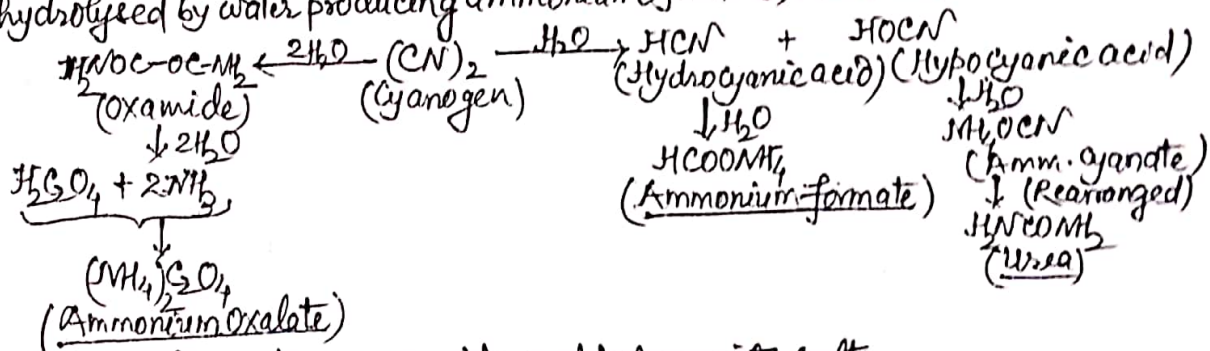 hydrolysed by water producing ammonium
H₂NOC-OC-NH₂ ←2H₂O— (CN)₂ —H₂O→ HCN + HOCN
(Oxamide) (Cyanogen) (Hydrocyanic acid) (Hypocyanic acid)
↓2H₂O ↓H₂O ↓H₂O
H₂C₂O₄ + 2NH₃ HCOONH₄ NH₄OCN
(Ammonium formate) (Amm. cyanate)
↓ (Rearranged)
H₂NCONH₂
(Urea)
(NH₄)₂C₂O₄
(Ammonium Oxalate)